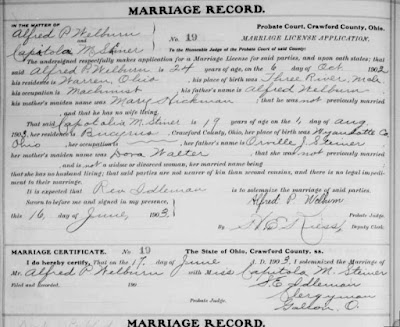 MARRIAGE RECORD.
IN THE MATTER OF
Probate Court, Crawford County, Ohio.
Alfred P. Welburn
No. 19
MARRIAGE LICENSE APPLICATION.
and
Capitola M. Steiner
To the Honorable Judge of the Probate Court of said County:
The undersigned respectfully makes application for a Marriage License for said parties, and upon oath states: that
said Alfred P. Welburn is 24 years of age, on the 6 day of Oct 1902
his residence is Warren, Ohio, his place of birth was Three River,
his occupation is Machinist, his father's name is Alfred Welburn
his mother's maiden name was Mary Hickman, that he was not previously married
and that he has no wife living.
That said Capitola M. Steiner is 19 years of age on the day of Aug.
1903, her residence is Bucyrus, Crawford County, Ohio, her place of birth was Wyandotte Co
Ohio, her occupation is, her father's name is Orville J. Steiner
her mother's maiden name was Dora Walter, that she was not previously married
and is not a widow or divorced woman, her married name being
that she has no husband living; that said parties are not nearer of kin than second cousins, and there is no legal impedi-
ment to their marriage.
It is expected that Rev Idleman is to solemnize the marriage of said parties.
Sworn to before me and signed in my presence,
Alfred P Welburn
this 16 day of June, 1903.
Probate Judge.
By
Deputy Clerk.
MARRIAGE CERTIFICATE.
No. 19
The State of Ohio, Crawford County, ss.
I do hereby certify, That on the 17 day of June A. D. 1903, I solemnized the Marriage of
Mr. Alfred P. Welburn with Miss Capitola M. Steiner
Filed and recorded, 190
S. E. Idleman
Clergyman
Probate Judge.
Galion, O.
MARRIAGE RECORD.